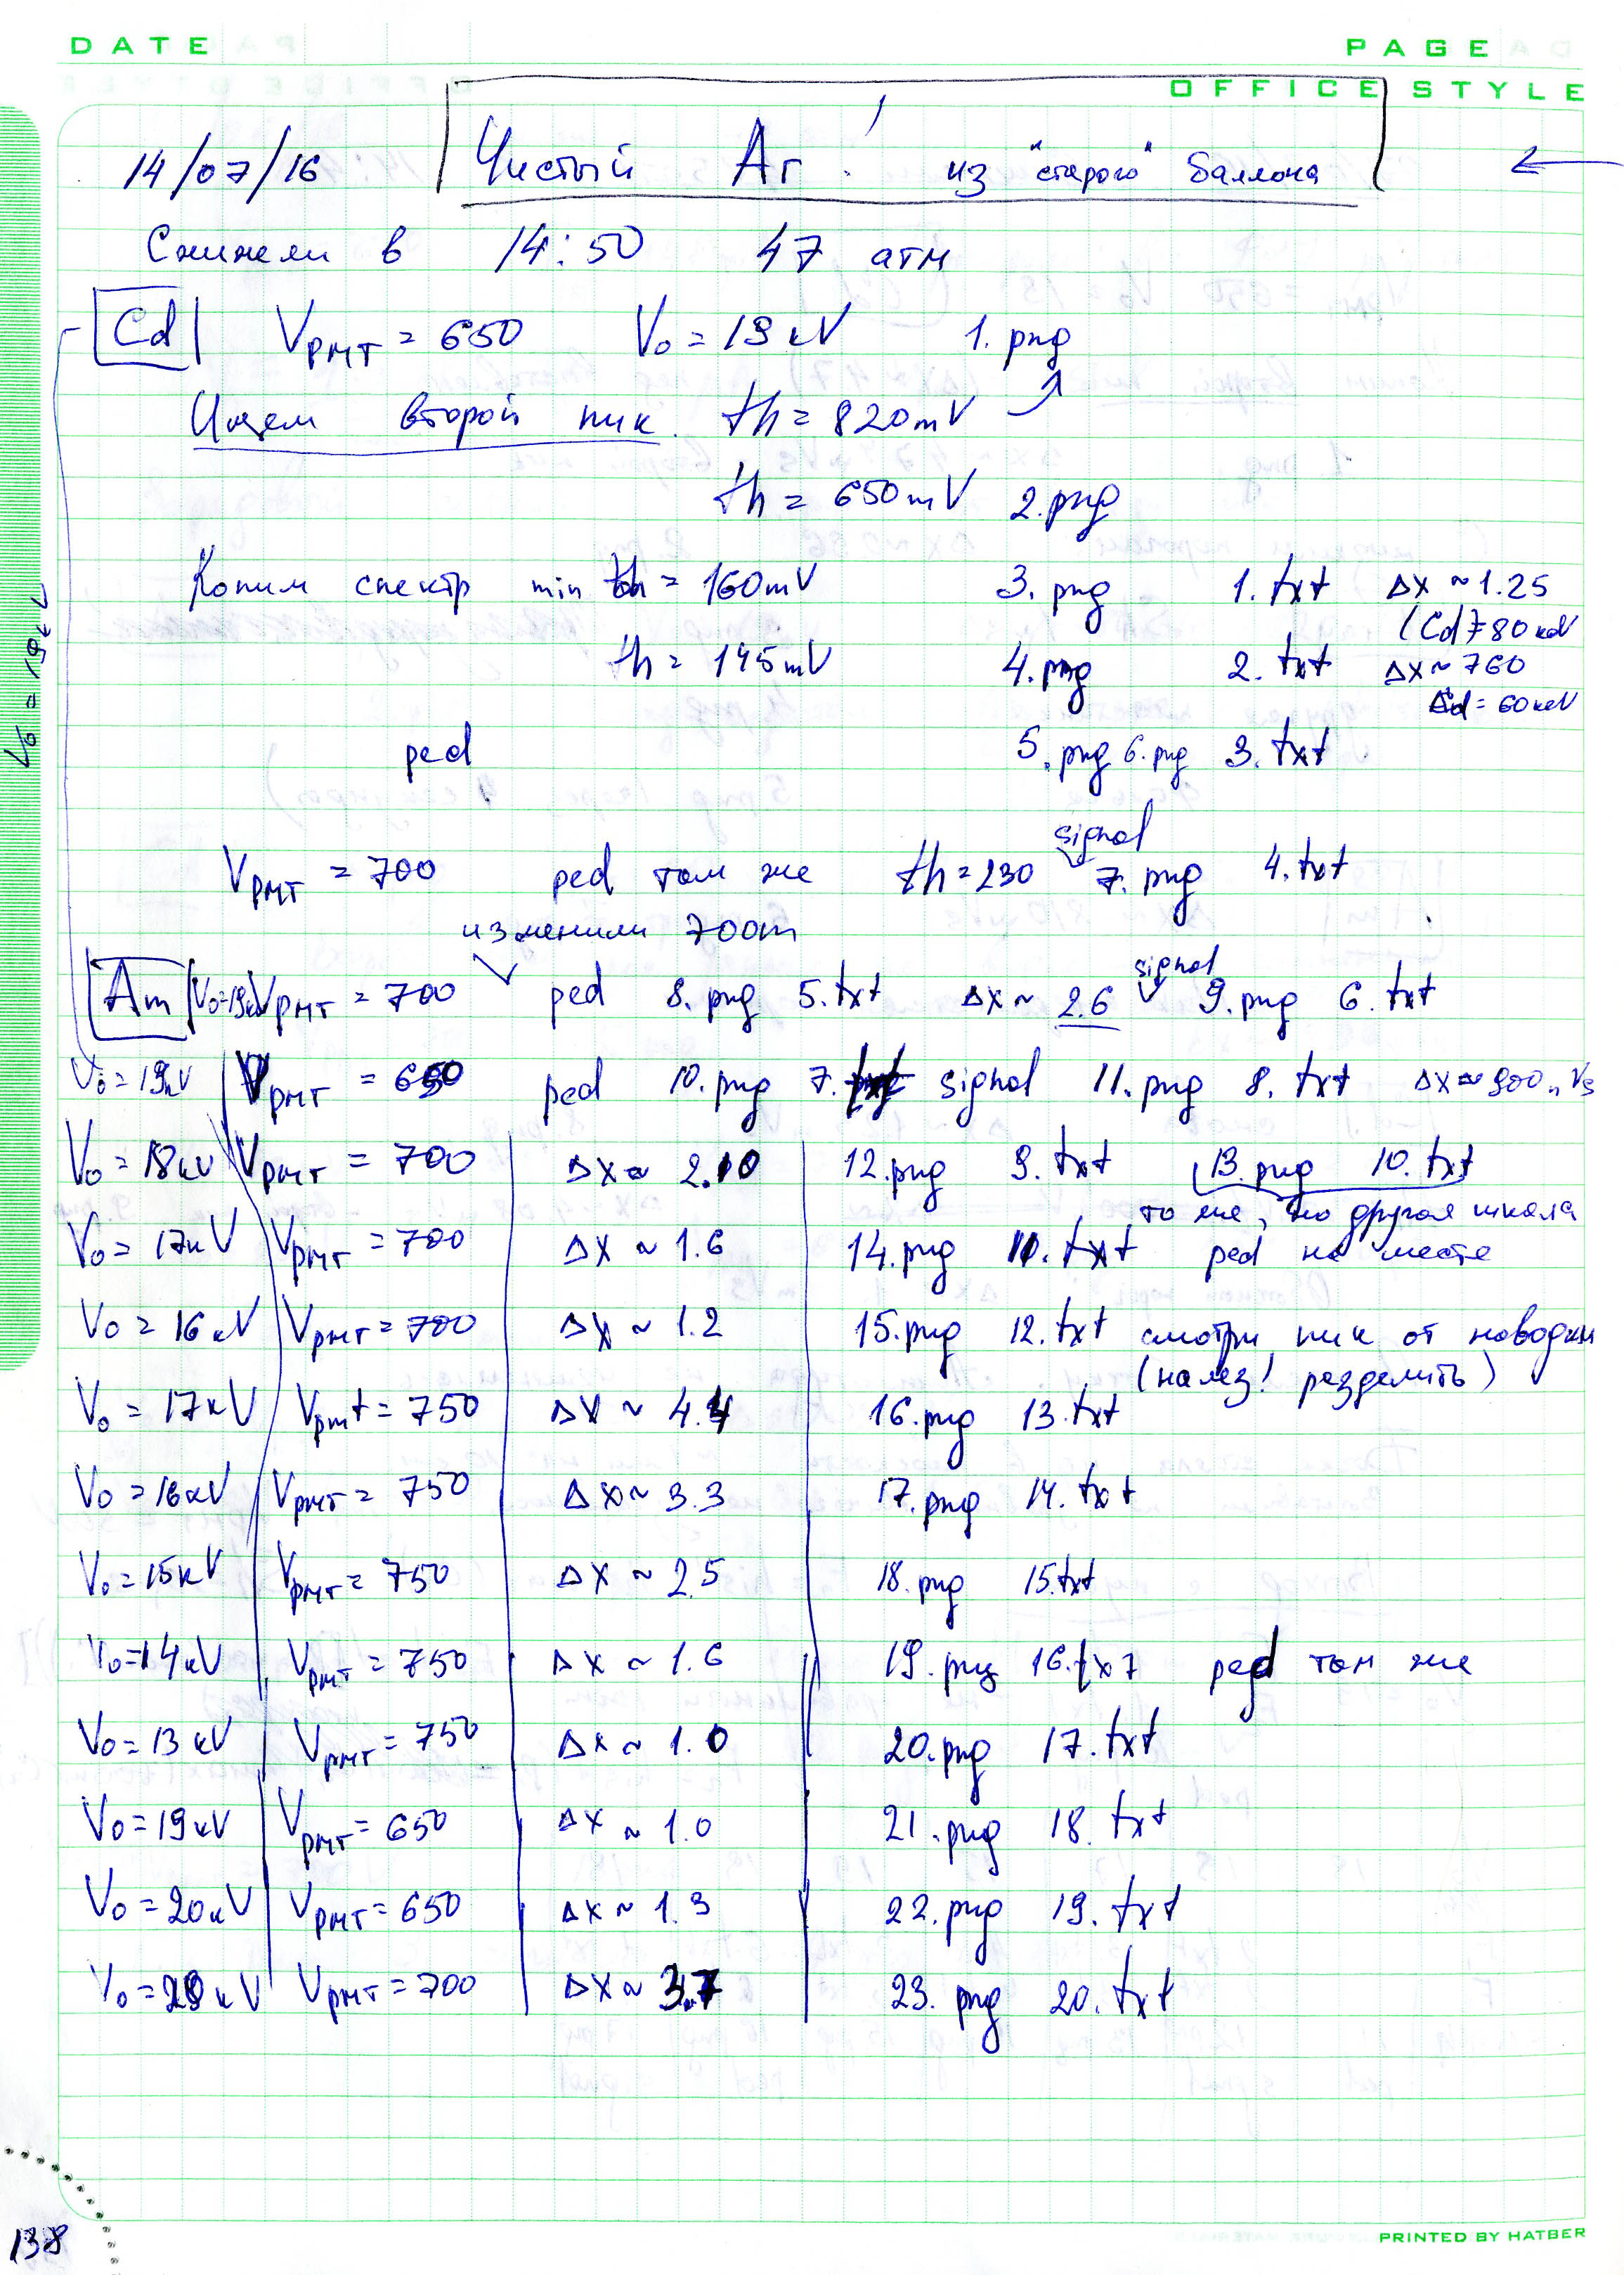 DATE
PAGE
OFFICE STYLE
14/07/16 Чистый Ar! из "старого" баллона ←
Снижели в 14:50 47 атм
Cd V PMT = 650 V₀ = 19 kV 1. png
Ищем второй пик. th = 820mV
th = 650mV 2. png
Копим спектр min th = 160mV 3. png 1. txt Δx ~ 1.25
(Cd) = 80 keV
th = 145mV 4. png 2. txt Δx ~ 760
Cd = 60 keV
ped 5. png 6. png 3. txt
signal
V PMT = 700 ped там же th = 230 7. png 4. txt
изменили
signal
Am V₀=19kV V PMT = 700 ped 8. png 5. txt Δx ~ 2.6 9. png 6. txt
V₀ = 19kV V PMT = 650 ped 10. png 7. txt signal 11. png 8. txt Δx ≈ 900 nVs
V₀ = 18kV V PMT = 700 Δx ≈ 2.10 12. png 9. txt 13. png 10. txt
то же, но другая шкала
V₀ = 17kV V PMT = 700 Δx ~ 1.6 14. png 11. txt ped на месте
V₀ = 16kV V PMT = 700 Δx ~ 1.2 15. png 12. txt смотри пик от наводки
(налез! разделить)
V₀ = 17kV V pmt = 750 Δx ~ 4.4 16. png 13. txt
V₀ = 16kV V PMT = 750 Δx ~ 3.3 17. png 14. txt
V₀ = 15kV V PMT = 750 Δx ~ 2.5 18. png 15. txt
V₀ = 14kV V PMT = 750 Δx ~ 1.6 19. png 16. txt ped там же
V₀ = 13kV V PMT = 750 Δx ~ 1.0 20. png 17. txt
V₀ = 19kV V PMT = 650 Δx ~ 1.0 21. png 18. txt
V₀ = 20kV V PMT = 650 Δx ~ 1.3 22. png 19. txt
V₀ = 20kV V PMT = 700 Δx ~ 3.7 23. png 20. txt
V₀ = 19kV
138
PRINTED BY HATBER